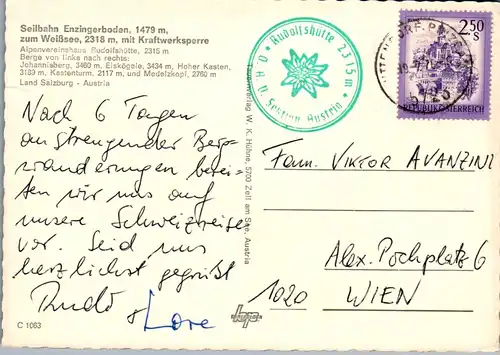 Seilbahn Enzingerboden, 1479 m,
zum Weißsee, 2318 m, mit Kraftwerksperre
Alpenvereinshaus Rudolfshütte, 2315 m
Berge von links nach rechts:
Johannisberg, 3460 m, Eiskögele, 3434 m, Hoher Kasten,
3189 m, Kastenturm, 2117 m, und Medelzkopf, 2760 m
Land Salzburg - Austria
Nach 6 Tagen
anstrengender Berg-
wanderungen berei-
ten wir uns auf
unsere Schweizreise
vor. Seid uns
herzlichst gegrüßt
Rudi &
Lore
C 1063
Rudolfshütte 2315m
Ö.A.V. Sektion Austria
Tauernverlag W. K. Hühne, 5700 Zell am See, Austria
2.50 S
REPUBLIK ÖSTERREICH
UTTENDORF
Fam. VIKTOR AVANZINI
Alex. Pochplatz 6
1020 WIEN